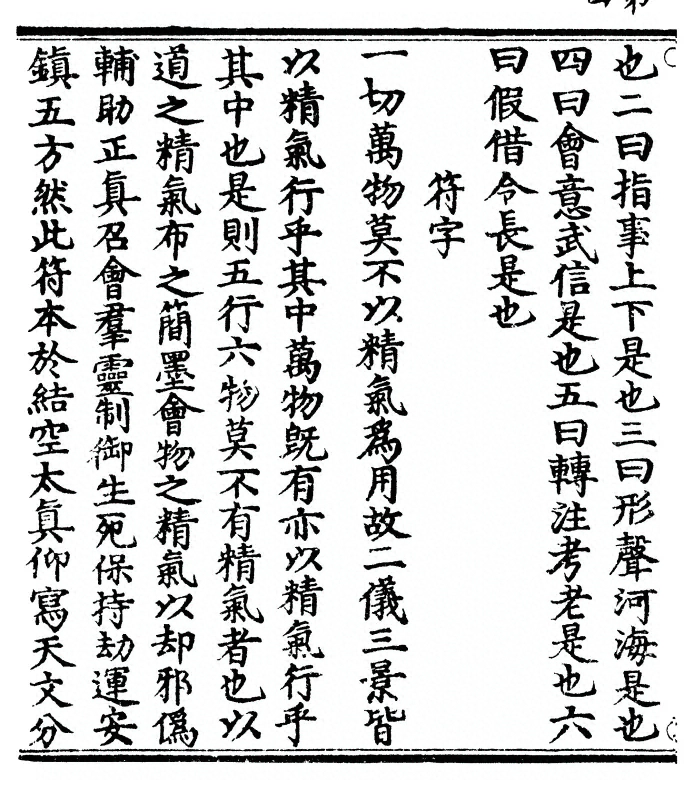 也二曰指事上下是也三曰形聲河海是也
四曰會意武信是也五曰轉注考老是也六
曰假借令長是也
符字
一切萬物莫不以精氣爲用故二儀三景皆
以精氣行乎其中萬物旣有亦以精氣行乎
其中也是則五行六物莫不有精氣者也以
道之精氣布之簡墨會物之精氣以却邪僞
輔助正真召會羣靈制御生死保持劫運安
鎮五方然此符本於結空太真仰寫天文分